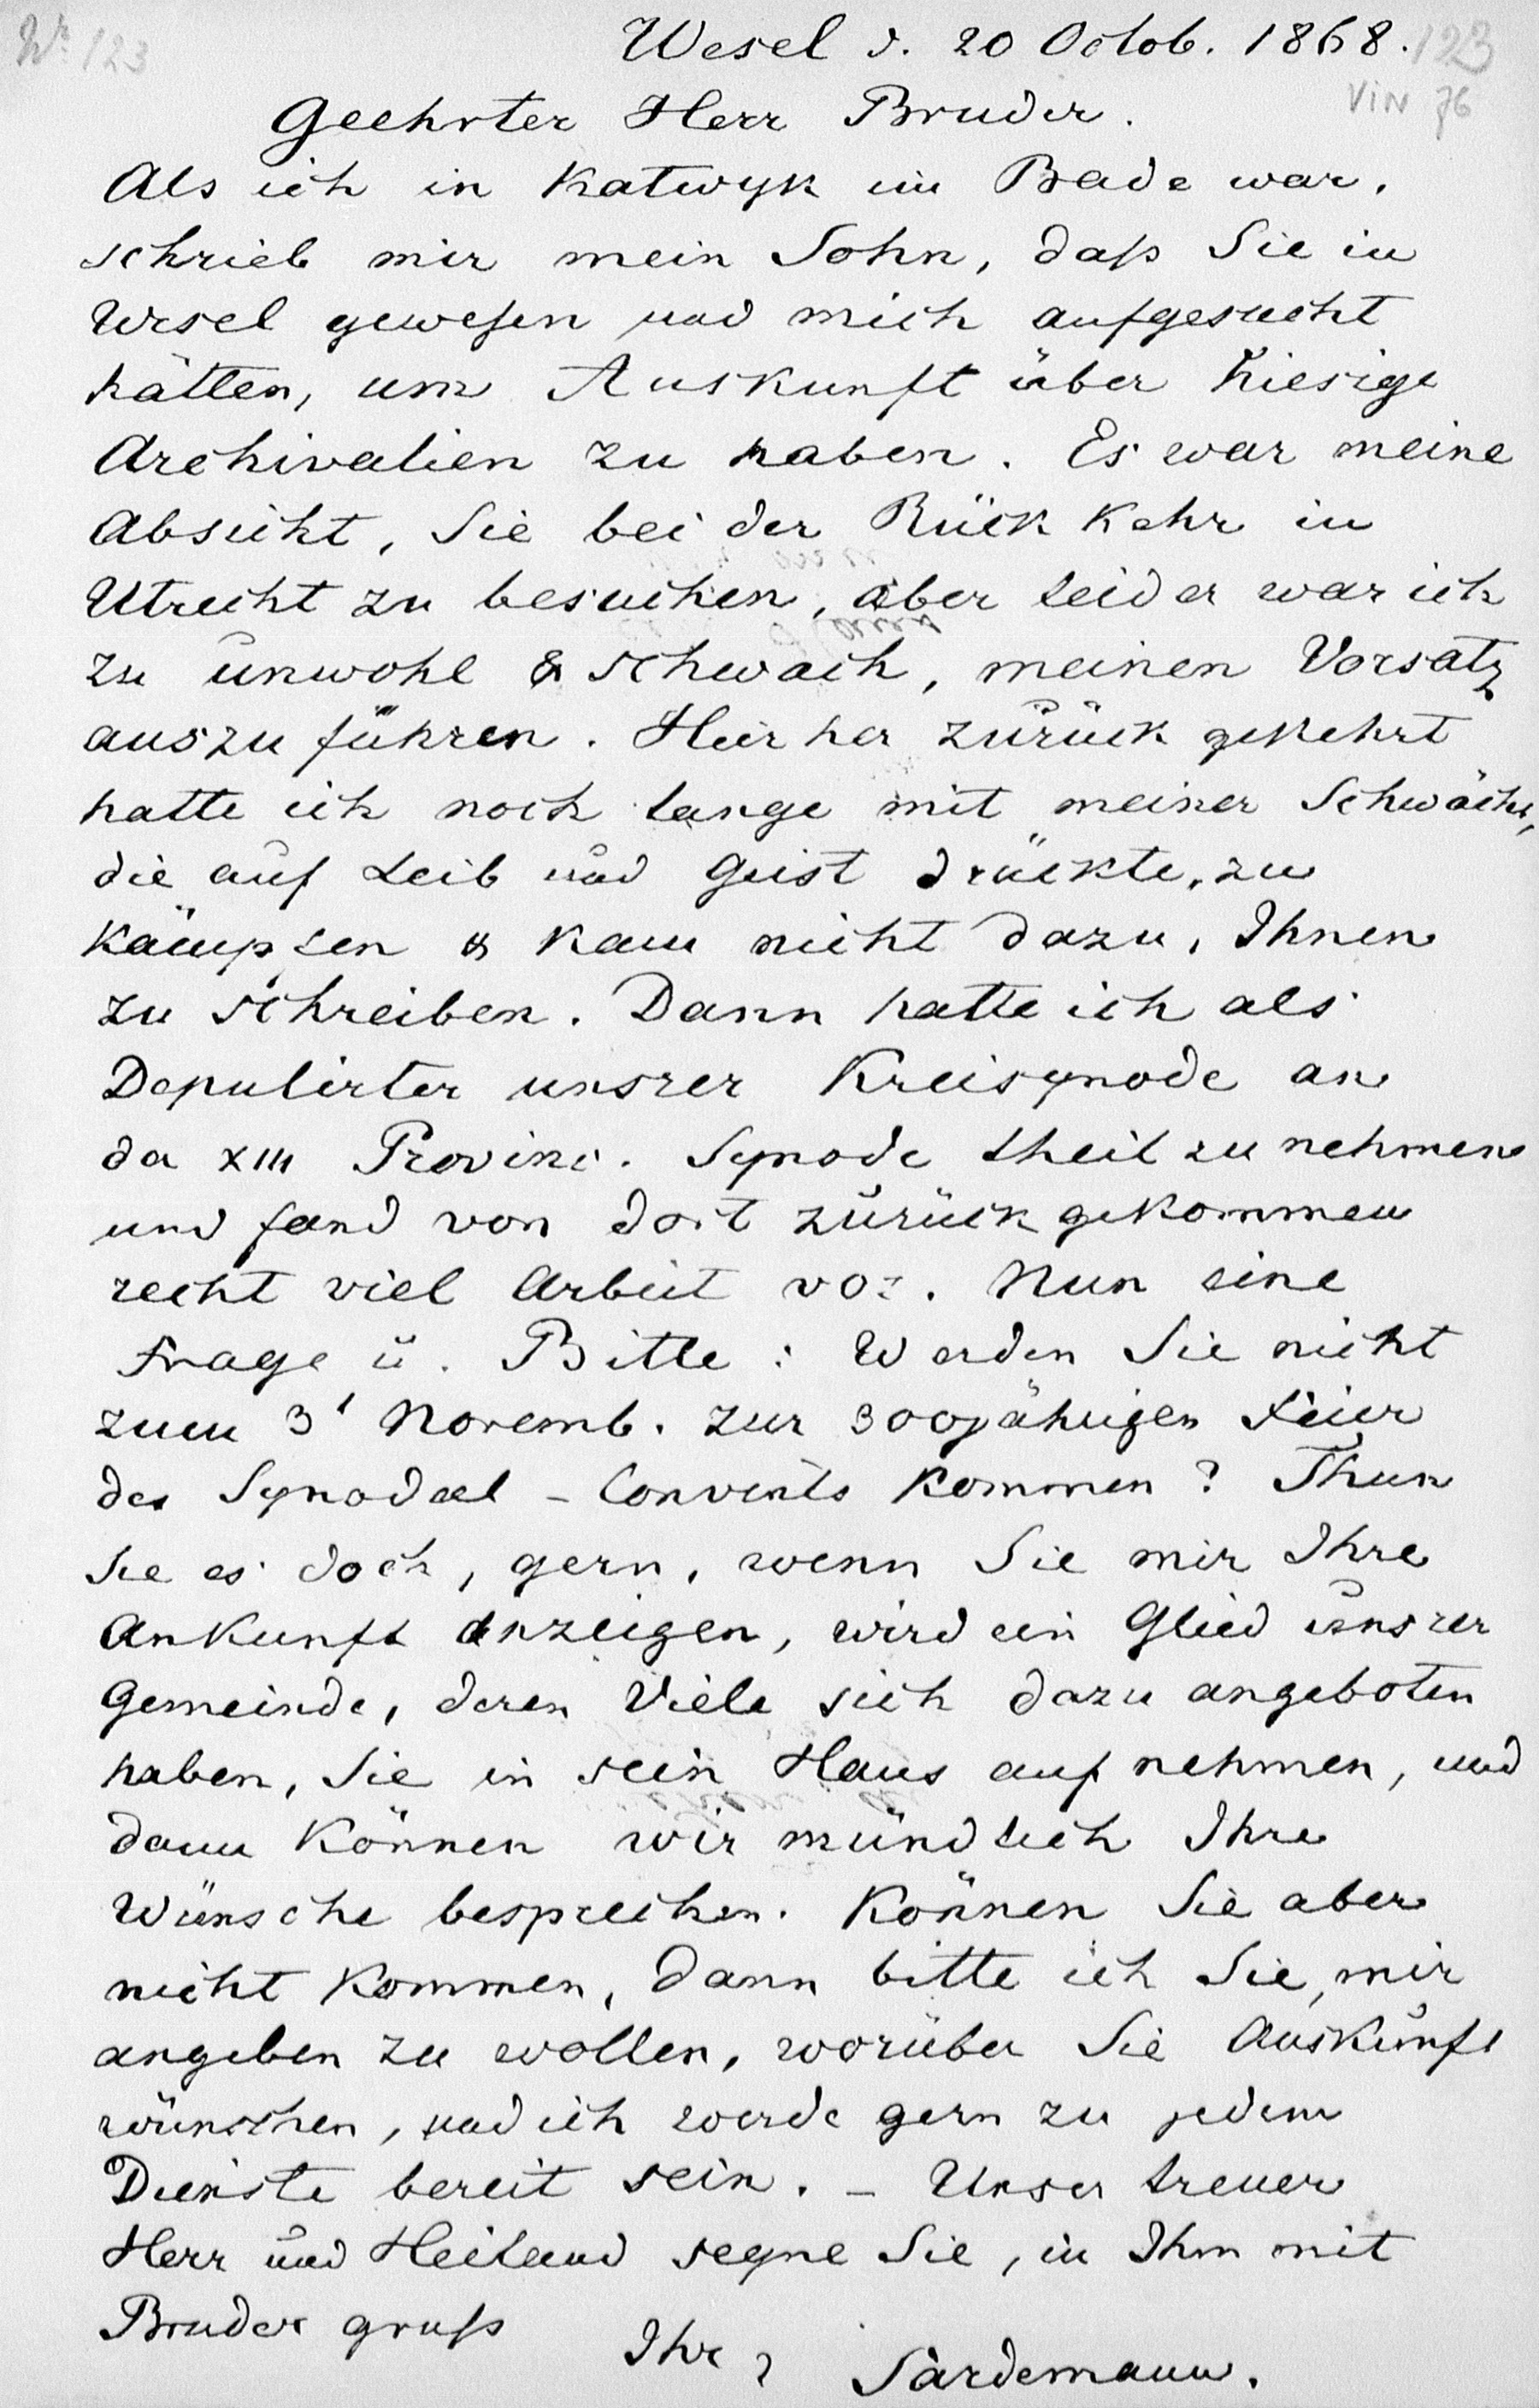 Nr. 123
Wesel d. 20 Octob. 1868. 123
VIN 76
Geehrter Herr Bruder.
Als ich in Katwyk im Bade war,
schrieb mir mein Sohn, daß Sie in
Wesel gewesen und mich aufgesucht
hätten, um Auskunft über hiesige
Archivalien zu haben. Es war meine
Absicht, Sie bei der Rückkehr in
Utrecht zu besuchen, aber leider war ich
zu unwohl & schwach, meinen Vorsatz
auszuführen. Hierher zurück gekehrt
hatte ich noch lange mit meiner Schwäche,
die auf Leib und Geist drückte, zu
kämpfen & kam nicht dazu, Ihnen
zu schreiben. Dann hatte ich als
Deputirter unsrer Kreissynode an
der XIII Provinc. Synode theil zu nehmen
und fand von dort zurückgekommen
recht viel Arbeit vor. Nun eine
Frage u. Bitte: Werden Sie nicht
zum 3' Novemb. zur 300jährigen Feier
des Synodal-Convents kommen? Thun
Sie es doch, gern, wenn Sie mir Ihre
Ankunft anzeigen, wird ein Glied unsrer
Gemeinde, deren Viele sich dazu angeboten
haben, Sie in sein Haus aufnehmen, und
dann können wir mündlich Ihre
Wünsche besprechen. Können Sie aber
nicht kommen, dann bitte ich Sie, mir
angeben zu wollen, worüber Sie Auskunft
wünschen, und ich werde gern zu jedem
Dienste bereit sein. – Unser treuer
Herr und Heiland segne Sie, in Ihm mit
Bruder gruß
Ihr Sardemann.